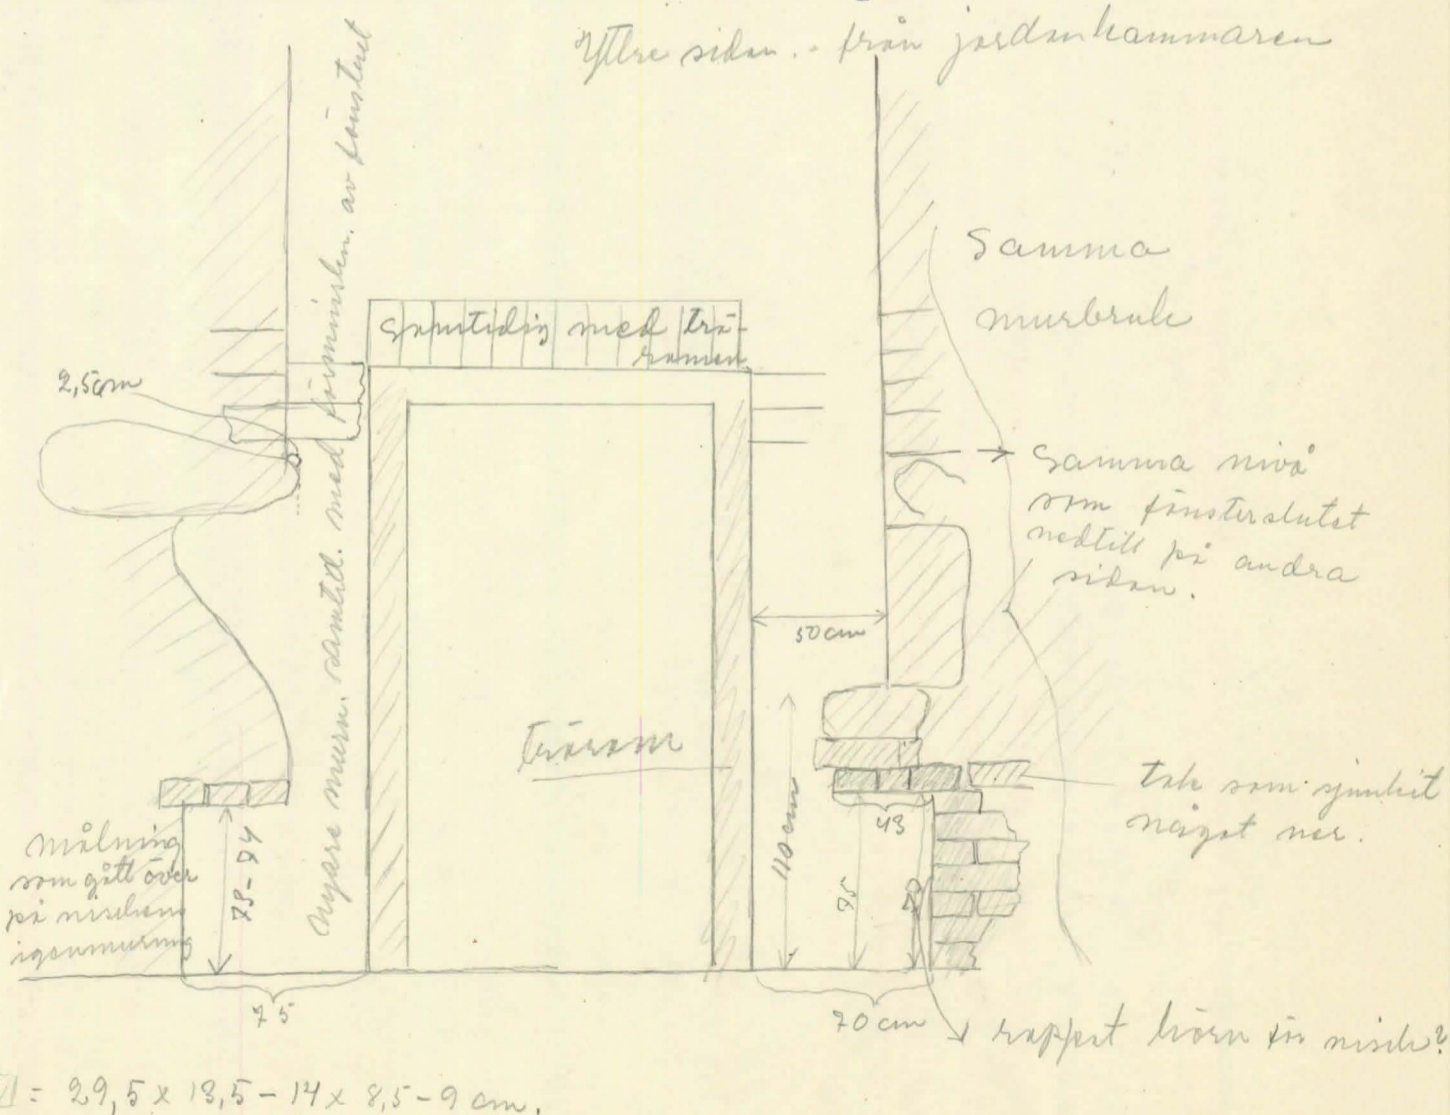 Yttre sidan. - från jordankammaren
Nyare murn. samtid. med förminskn. av fönstret
Samma
murbruk
Samtidig med trä-
ramen
2,5cm
Samma nivå
som fönsterslutet
nedtill på andra
sidan.
50 cm
träram
tak som sjunkit
något ner.
målning
som gått över
på nischens
igenmurning
110 cm
43
75
70 cm
rappat hörn för nisch?
= 29,5 x 13,5 - 14 x 8,5 - 9 cm.